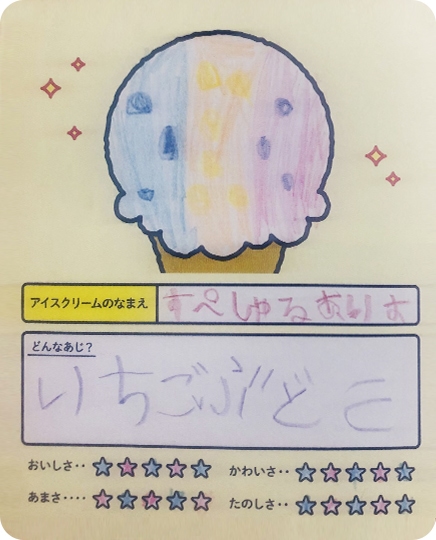 アイスクリームのなまえ すぺしゃるありす
どんなあじ?
いちごぶどう
おいしさ‥ ☆☆☆☆☆ かわいさ‥ ☆☆☆☆☆
あまさ‥‥ ☆☆☆☆☆ たのしさ‥ ☆☆☆☆☆